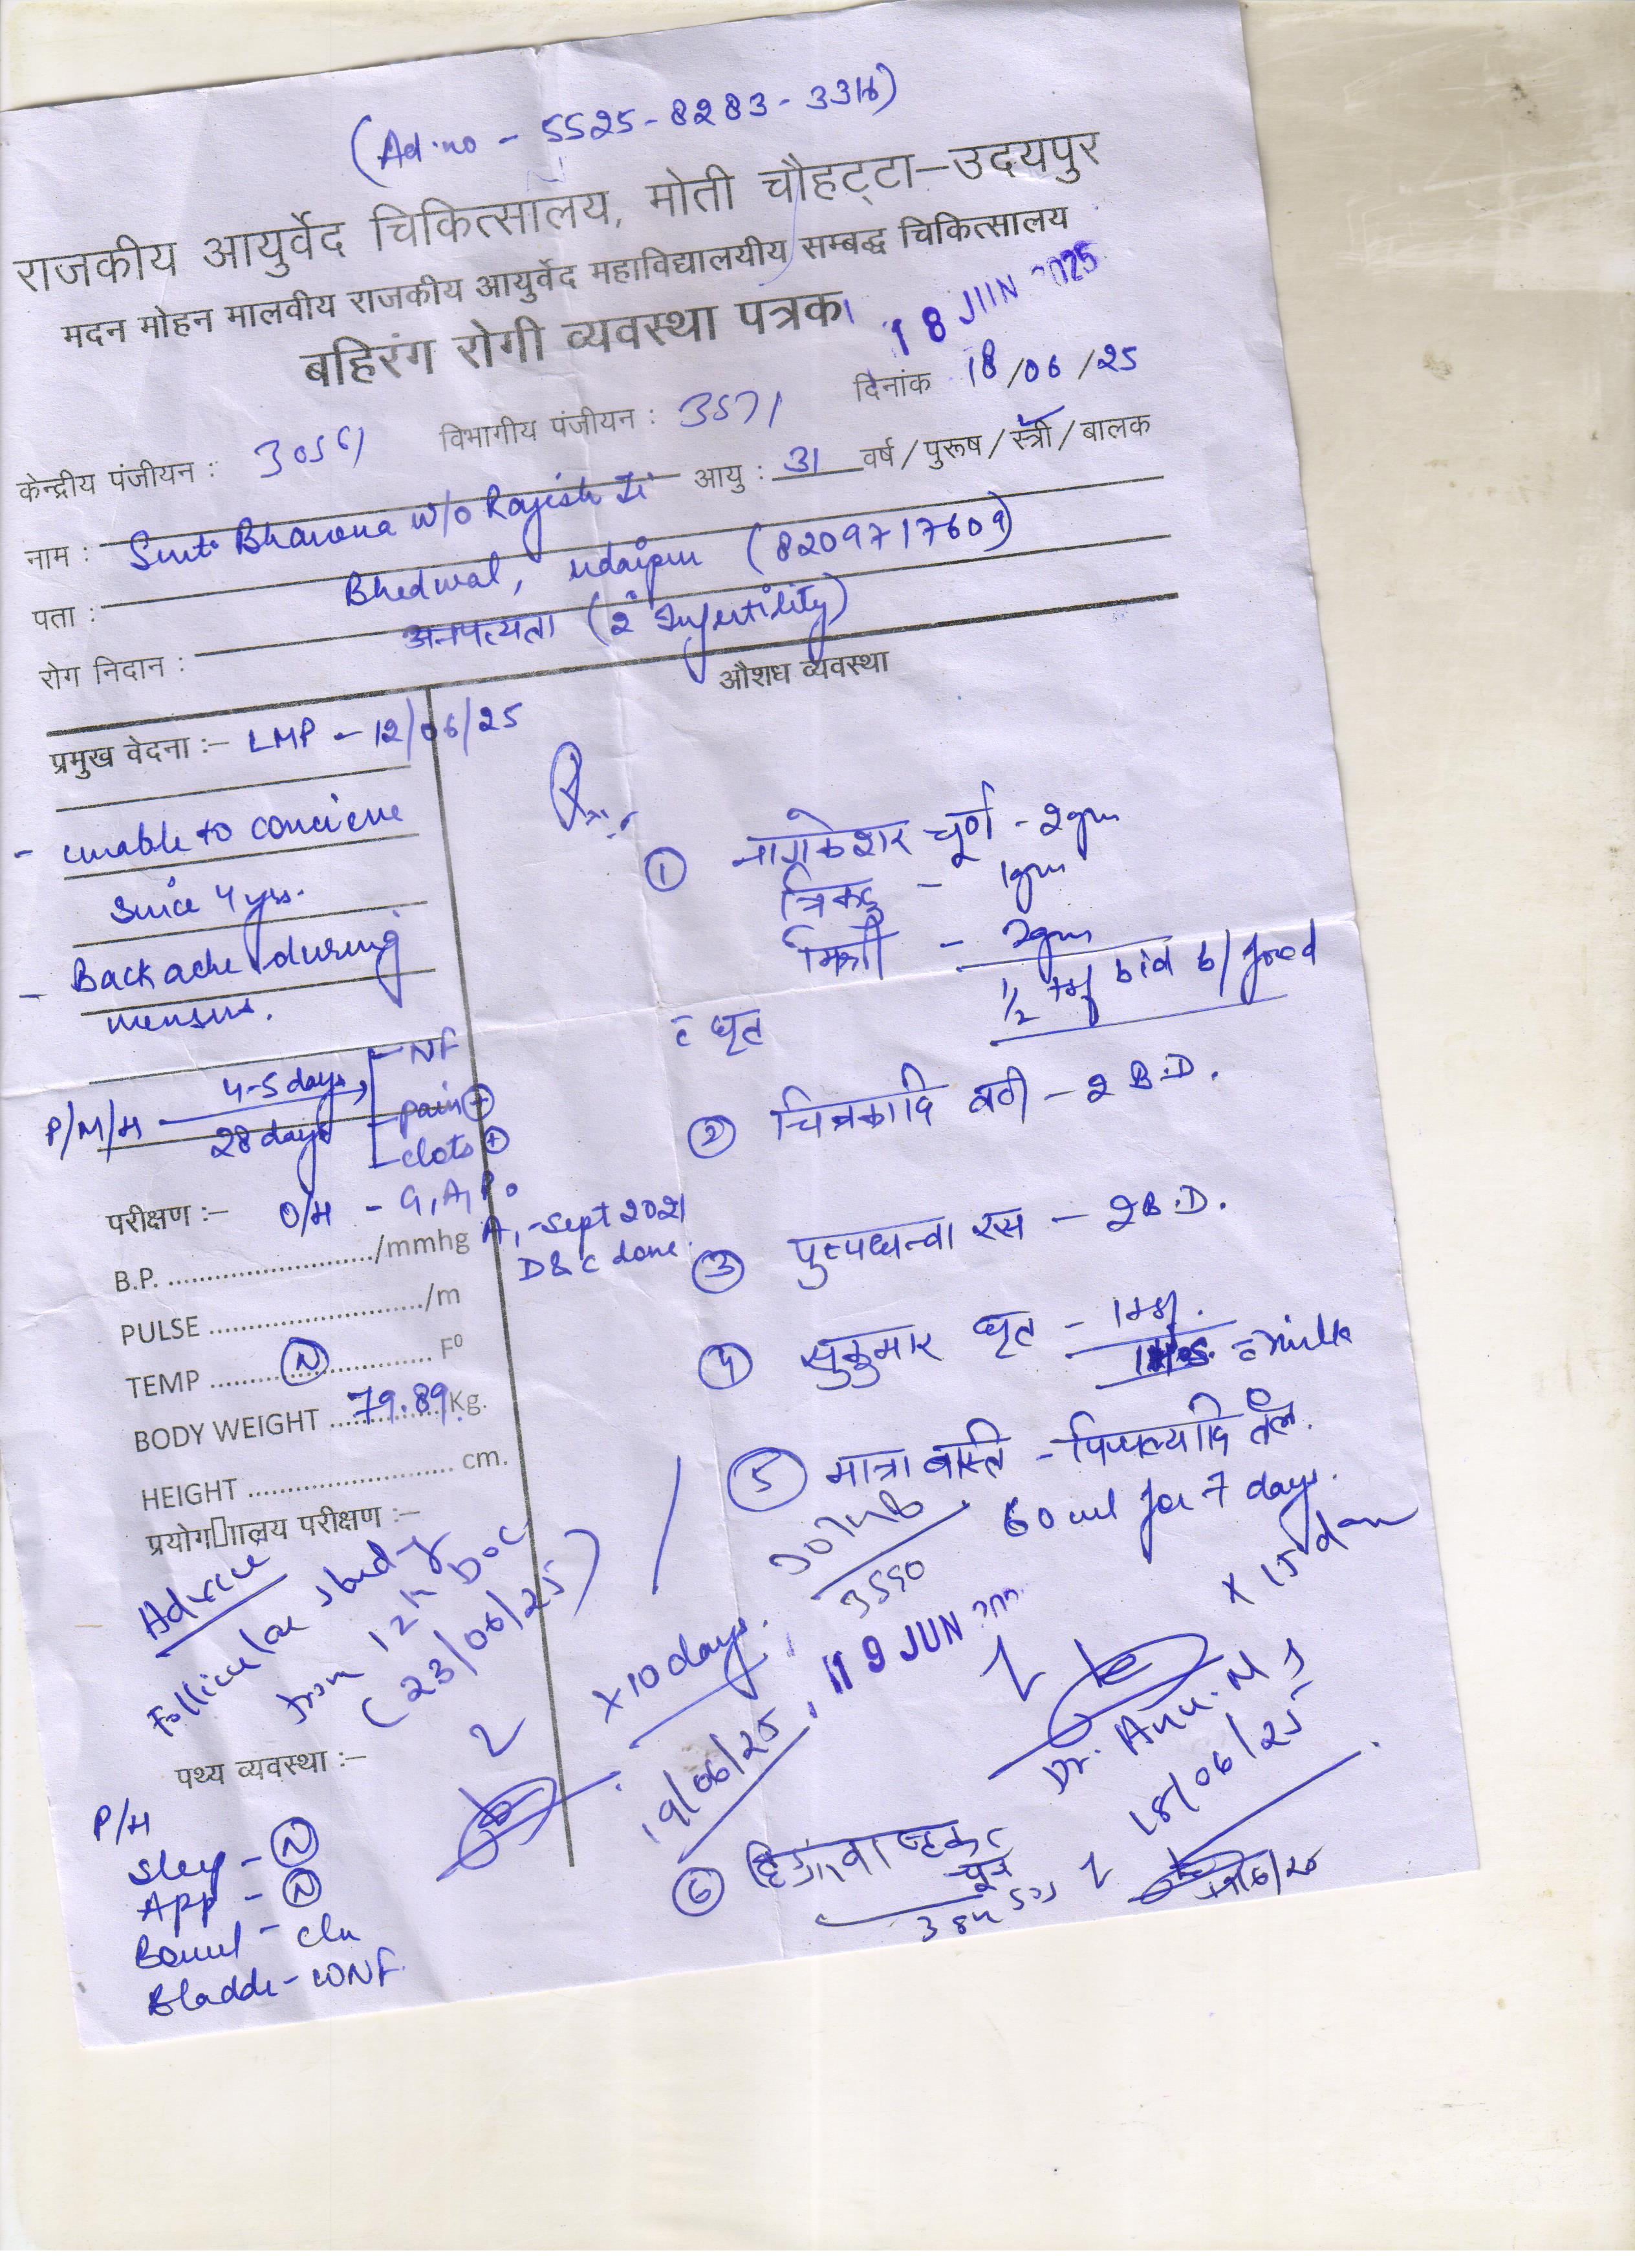 (Ad.no - 5525-8283-3316)
राजकीय आयुर्वेद चिकित्सालय, मोती चौहट्टा–उदयपुर
मदन मोहन मालवीय राजकीय आयुर्वेद महाविद्यालयीय सम्बद्ध चिकित्सालय
बहिरंग रोगी व्यवस्था पत्रक
18 JUN 2025
केन्द्रीय पंजीयन : विभागीय पंजीयन : 3571 दिनांक 18/06/25
नाम : Smt. Bhavana w/o Rajesh Ji आयु : 31 वर्ष/पुरूष/स्त्री/बालक
पता : Bhedwal, udaipur (8209717609)
रोग निदान : अनपत्यता (2° Infertility)
औशध व्यवस्था
प्रमुख वेदना :– LMP - 12/06/25
- unable to concieve
since 4 yrs.
- Backache during
menses.
P/M/H 4-5 days, NF
28 days pain
clots +
परीक्षण :– O/H - G1A1P0
A1 - Sept 2021
D&C done.
B.P. ............/mmhg
PULSE ............/m
TEMP ....(N).... F⁰
BODY WEIGHT 79.89 Kg.
HEIGHT ............ cm.
प्रयोग□ाालय परीक्षण :–
Advice
Follicular study
from 12th DOC
(23/06/25)
पथ्य व्यवस्था :–
P/H
Sleep - (N)
App - (N)
Bowel - cln
Bladder - WNF.
Rx
① नागकेशर चूर्ण - 2gm
त्रिकटु - 1gm
मिश्री - 2gm
1/2 tsf bid b/food
c̄ घृत
② चित्रकादि वटी - 2 B.D.
③ पुष्पधन्वा रस - 2 B.D.
④ सुकुमार घृत - 1 tsf.
c̄ milk
⑤ मात्रा बस्ति - पिप्पल्यादि तैल.
60 ml for 7 days.
x 15 days
3590
x 10 days.
19 JUN
19/06/25
Dr. Anu. M
18/06/25
⑥ हिंग्वाष्टक चूर्ण
19/6/25